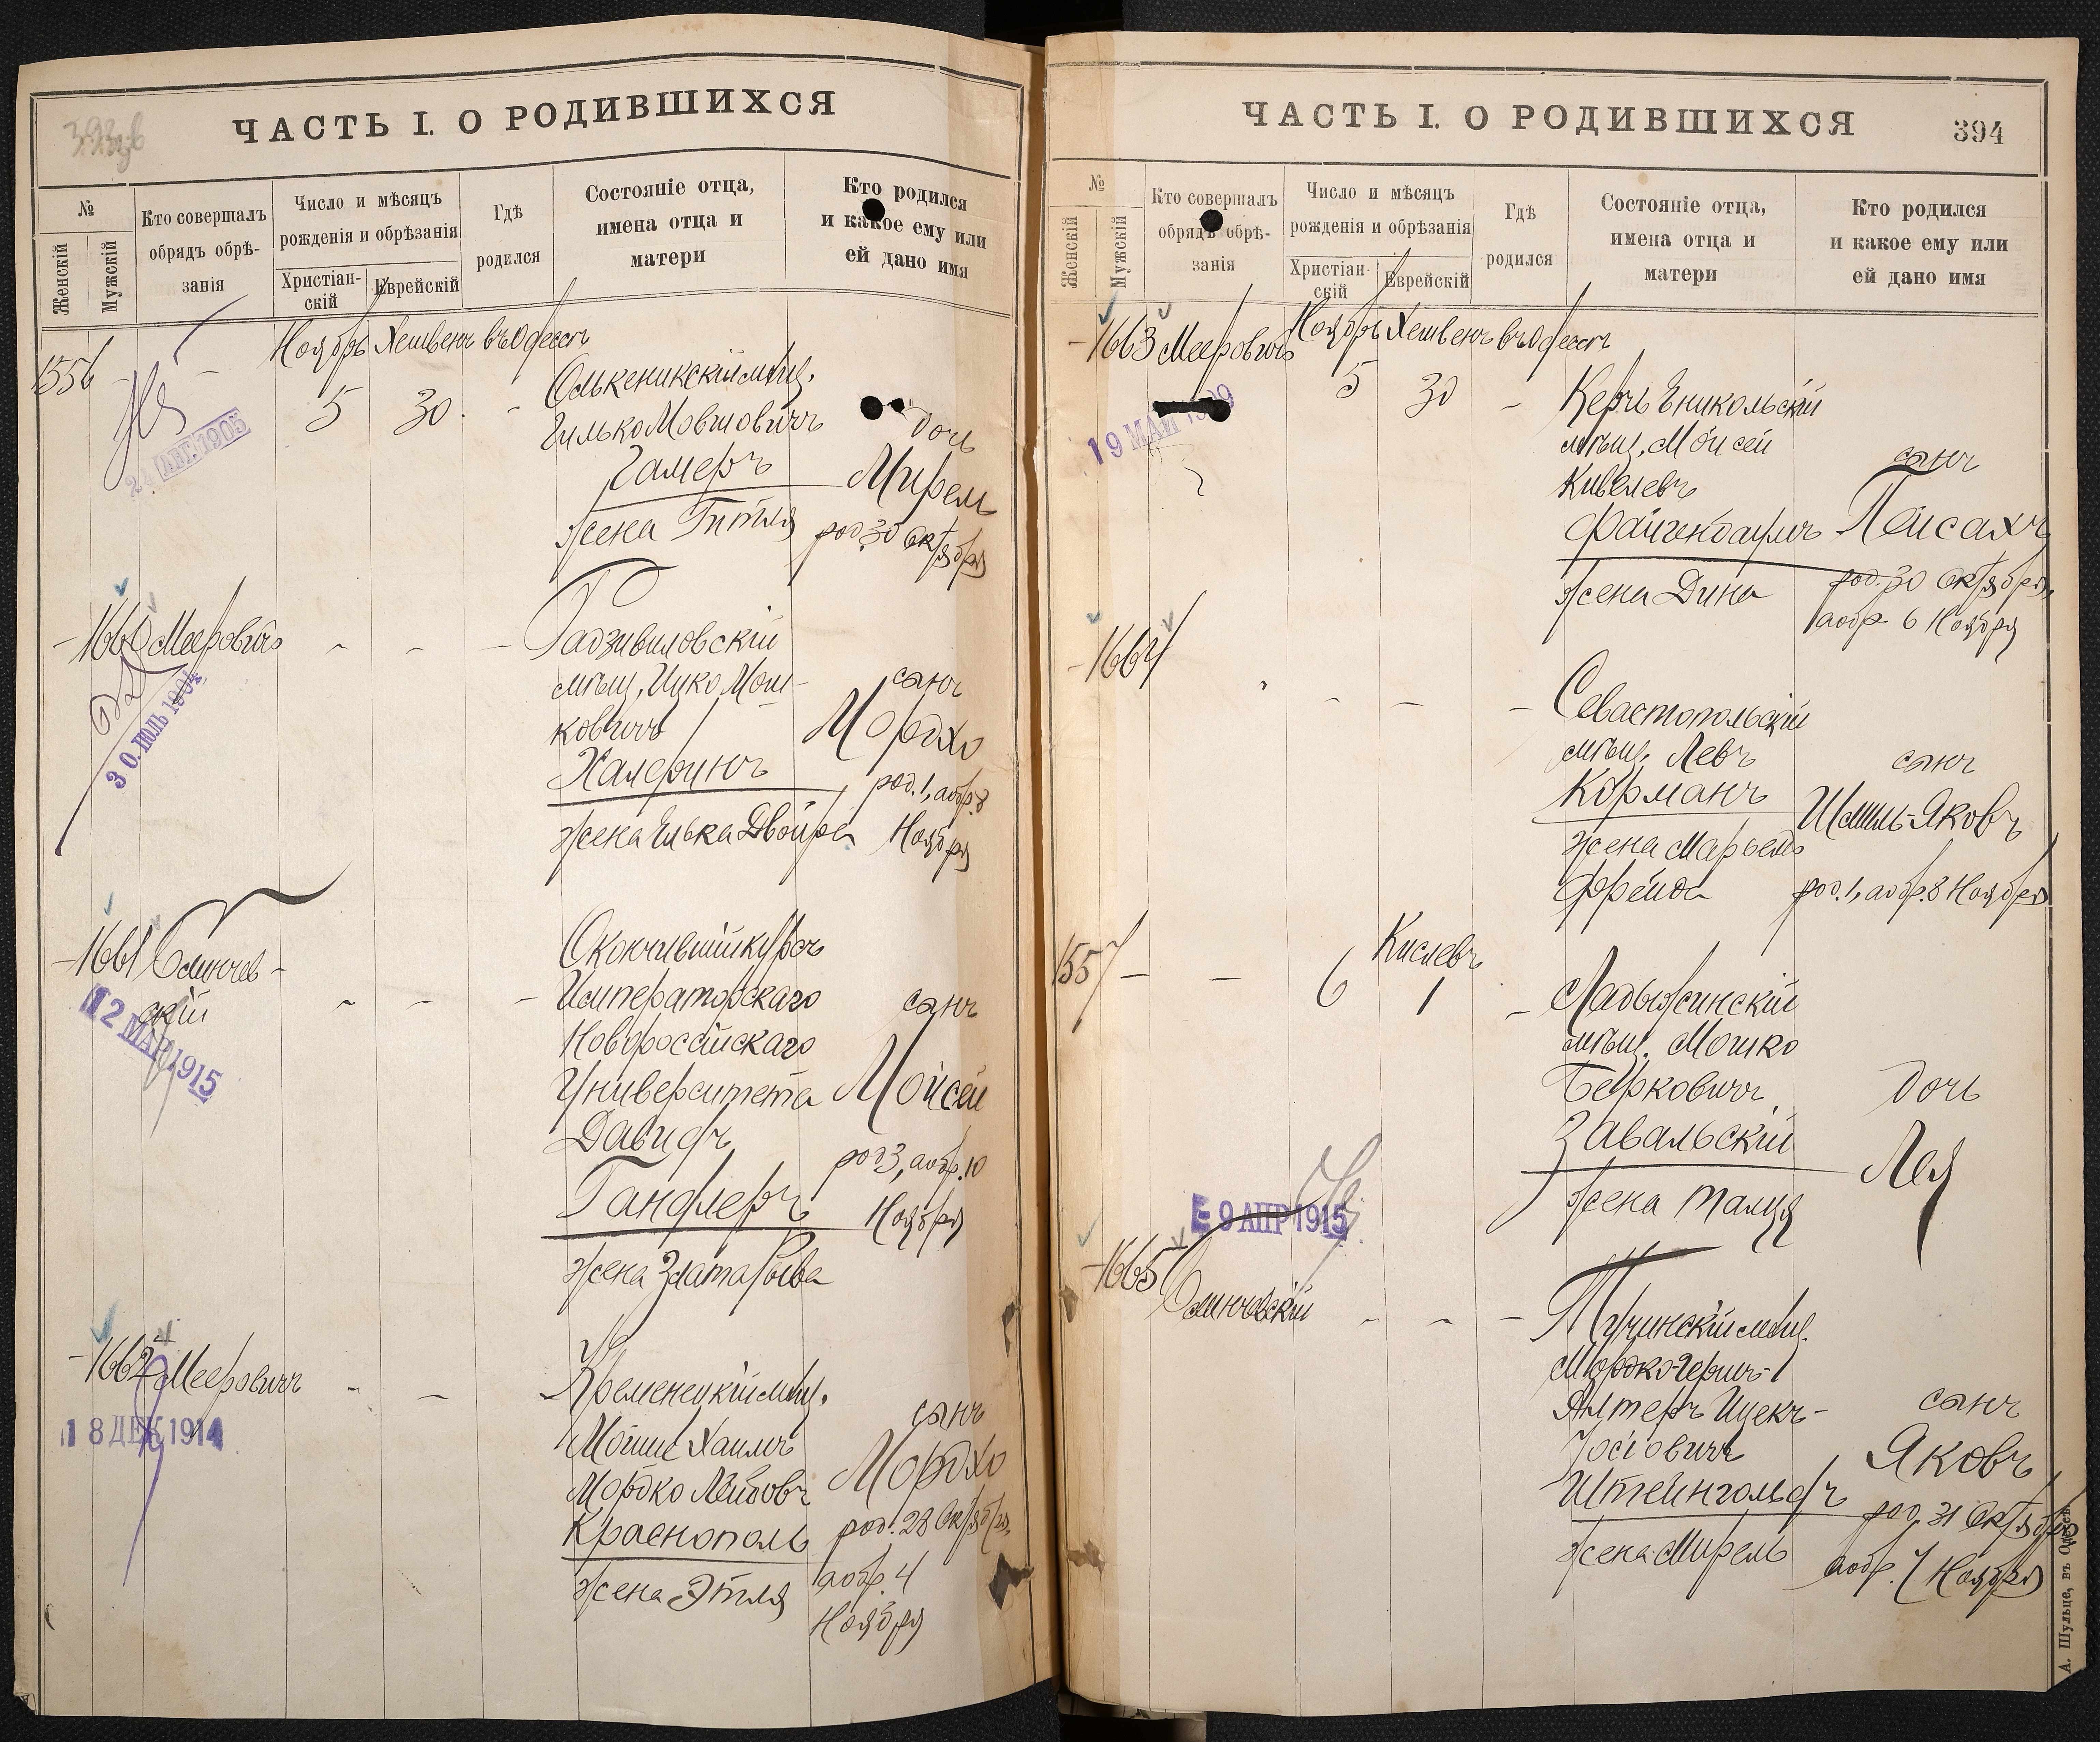 ЧАСТЬ I. О РОДИВШИХСЯ
№
Женскій
Мужскій
Кто совершалъ
обрядъ обрѣ-
занія
Число и мѣсяцъ
рожденія и обрѣзанія
Христіан-
скій
Еврейскій
Гдѣ
родился
Состояніе отца,
имена отца и
матери
Кто родился
и какое ему или
ей дано имя
Ноябрь Хешвенъ въ Одессѣ
1556 - - 5 30 - Олькеникскій мѣщ.
Гилько Мовшовичъ
Гамеръ
жена Гитля
дочь
Мирель
род. 30 Октября
АПР. 1905
- 1660 Мееровичъ - - - Радзивиловскій
мѣщ. Ицко Мош-
ковичъ
Халфинъ
жена Элька Двойра
сынъ
Мордхо
род. 1, а обр. 8
Ноября
30. ІЮЛЬ
- 1661 Слинчев-
скій
- - - Окончившій курсъ
Императорскаго
Новороссійскаго
Университета
Давидъ
Гандлеръ
жена Злата Рыва
сынъ
Мойсей
род 3, а обр. 10
Ноября
12 МАР 1915
- 1662 Мееровичъ - - - Кременецкій мѣщ.
Мойше Хаимъ
Мордко Лейбовъ
Краснополь
жена Этля
сынъ
Мордхо
род. 28 Октября,
а обр. 4
Ноября
18 ДЕК 1914
ЧАСТЬ I. О РОДИВШИХСЯ
394
№
Женскій
Мужскій
Кто совершалъ
обрядъ обрѣ-
занія
Число и мѣсяцъ
рожденія и обрѣзанія
Христіан-
скій
Еврейскій
Гдѣ
родился
Состояніе отца,
имена отца и
матери
Кто родился
и какое ему или
ей дано имя
Ноябрь Хешвенъ въ Одессѣ
- 1663 Мееровичъ 5 30 - Керчь Еникольскій
мѣщ. Мойсей
Кивелевъ
Файгенбаумъ
жена Дина
сынъ
Пейсахъ
род. 30 Октября,
а обр. 6 Ноября
19 МАЙ
- 1664 - - - Севастопольскій
мѣщ. Левъ
Корманъ
жена Марьемъ
Фрейда
сынъ
Шмиль-Яковъ
род. 1, а обр. 8 Ноября
Кислевъ
1557 - - 6 1 - Ладыжинскій
мѣщ. Мошко
Берковичъ
Завальскій
жена
дочь
Лея
9 АПР 1915
- 1665 Слинчевскій - - - Тучинскій мѣщ.
Альтеръ Ицекъ-
Іосіовичъ
Штейнгольдъ
жена Мирель
сынъ
Яковъ
род. 31 Октября
а обр. 7 Ноября
А. Шульце, въ Одессѣ